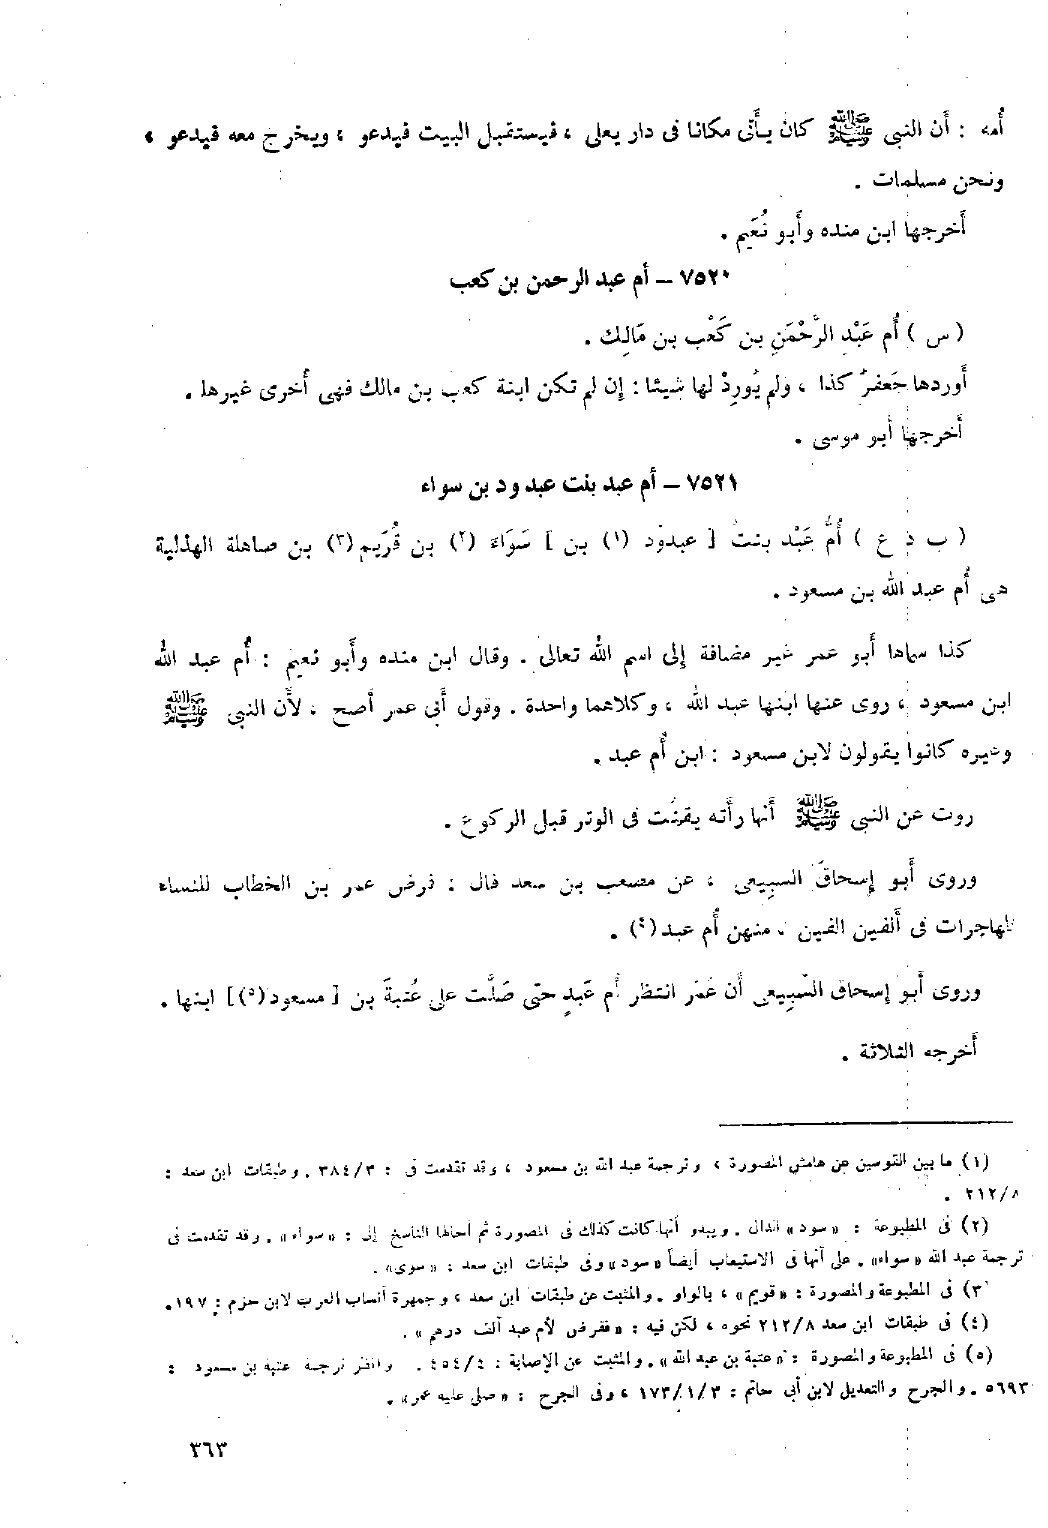 أُمه : أَن النبى ﷺ كان يأَتى مكانا فى دار يعلى ، فيستقبل البيت فيدعو ، ويخرج معه فيدعو ،
ونحن مسلمات .
أَخرجها ابن منده وأَبو نُعَيم .
٧٥٢٠ – أم عبد الرحمن بن كعب
( س ) أُم عَبْد الرَّحْمَنِ بن كَعْب بن مَالِك .
أَوردها جَعفر كذا ، ولم يُورِدْ لها شيئا : إِن لم تكن ابنة كعب بن مالك فهى أُخرى غيرها .
أَخرجها أَبو موسى .
٧٥٢١ – أم عبد بنت عبدود بن سواء
( ب د ع ) أُمُّ عَبْد بنتُ [ عبدود (١) بن ] سَوَاءَ (٢) بن قُرَيم(٣) بن صاهلة الهذلية
هى أُم عبد الله بن مسعود .
كذا سماها أَبو عمر غير مضافة إِلى اسم الله تعالى . وقال ابن منده وأَبو نعيم : أُم عبد الله
ابن مسعود ، روى عنها ابنها عبد الله ، وكلاهما واحدة . وقول أَبى عمر أَصح ، لأَن النبى ﷺ
وغيره كانوا يقولون لابن مسعود : ابن أُم عبد .
روت عن النبى ﷺ أَنها رأَته يقنُت فى الوتر قبل الركوع .
وروى أَبو إِسحاقَ السبِيعى ، عن مصعب بن سعد قال : فرض عمر بن الخطاب للنساء
المهاجرات فى أَلفين الفين ، منهن أُم عبد(٤) .
وروى أَبو إِسحاق السَّبِيعى أَن عُمَر انتظر أُم عَبدٍ حتى صَلَّت على عُتبةَ بن [ مسعود(٥)] ابنها .
أَخرجه الثلاثة .
(١) ما بين القوسين عن هامش المصورة ، وترجمة عبد الله بن مسعود ، وقد تقدمت فى : ٣٨٤/٣ . وطبقات ابن سعد :
٢١٢/٨ .
(٢) فى المطبوعة : «سود» الدال . ويبدو أنها كانت كذلك فى المصورة ثم أحالها الناسخ إلى : «سواء» . وقد تقدمت فى
ترجمة عبد الله «سواء» . على أنها فى الاستيعاب أيضاً «سود» وفى طبقات ابن سعد : «سوى» .
(٣) فى المطبوعة والمصورة : «قويم» ، بالواو . والمثبت عن طبقات ابن سعد ، وجمهرة أنساب العرب لابن حزم : ١٩٧.
(٤) فى طبقات ابن سعد ٢١٢/٨ نحوه ، لكن فيه : «ففرض لأم عبد ألف درهم» .
(٥) فى المطبوعة والمصورة : «عتبة بن عبد الله» . والمثبت عن الإصابة : ٤٥٤/٤ . وانظر ترجمة عتبة بن مسعود :
٥٦٩٣ . والجرح والتعديل لابن أبى حاتم : ١٧٣/١/٣ ، وفى الجرح : «صلى عليه عمر» .
٣٦٣